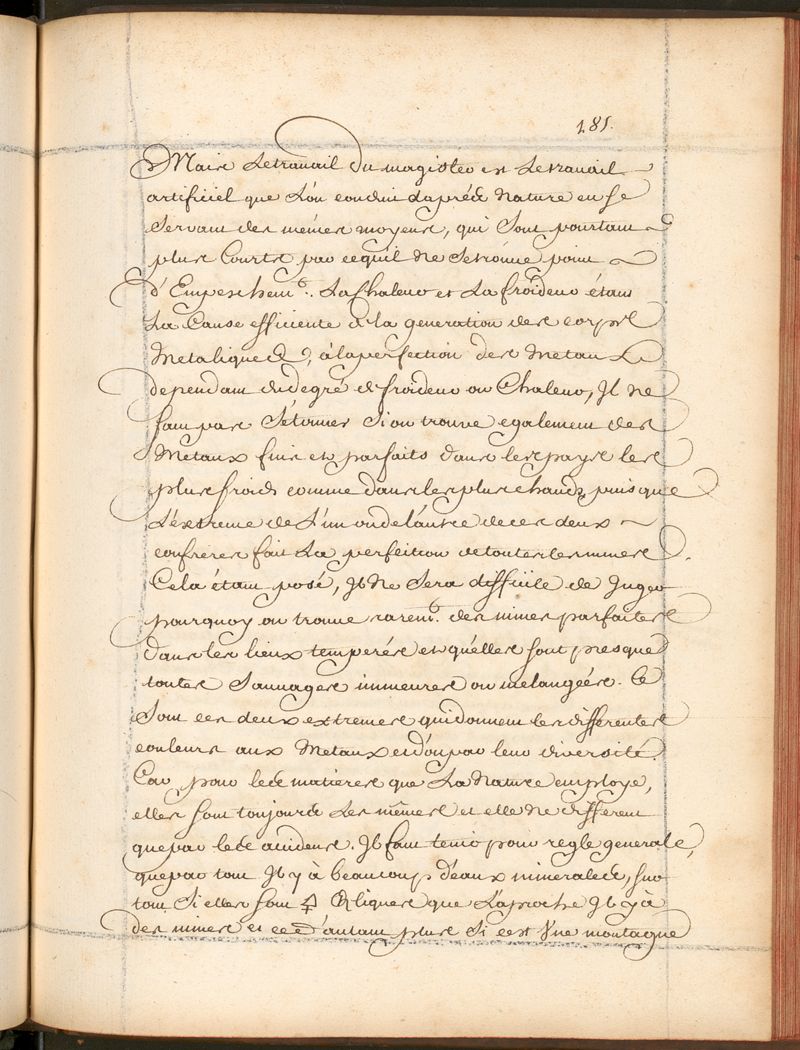 181.
Mais Le travail du magister est Le travail
artificiel que L'on conduit daprés Nature en se
servant des mémes moyens, qui Sont pourtant
plus Courts par cequil Ne Se trouve point
d'Empeschem.t. La Chaleur et La froideur étans
La Cause efficiente à la generation des corps
Metaliques, à la perfection des Metaux
dependant du degré de froideur ou Chaleur, Il Ne
faut pas S'étonner Si on trouve egalement des
Metaux fins et parfaits dans les pays les
plus froids comme dans les plus chauds, puis que
L'extreme de L'un ou de l'autre de ces deux
confreres fait La perfection de toutes les mines.
Cela étant posé, Il Ne Sera difficile de Juger
pourquoy on trouve rarem.t des mines parfaites
dans les lieux temperés et qu'elles sont presque
toutes Sauvages immeures ou melangées. Ce
Sont ces deux extremes qui donnent les differentes
couleurs aux Metaux et d'ou par leur diversité.
Car pour les matieres que La Nature employe,
elles sont toujours Les mêmes et elle Ne different
que par les accidens. Il faut tenir pour regle generale,
que par tout Il y à beaucoup d'eaux minerales, sur
tout Si elles sont 🜍 que L'aproche Il y à
des mines et ce d'autant plus Si c'est Vne montagne